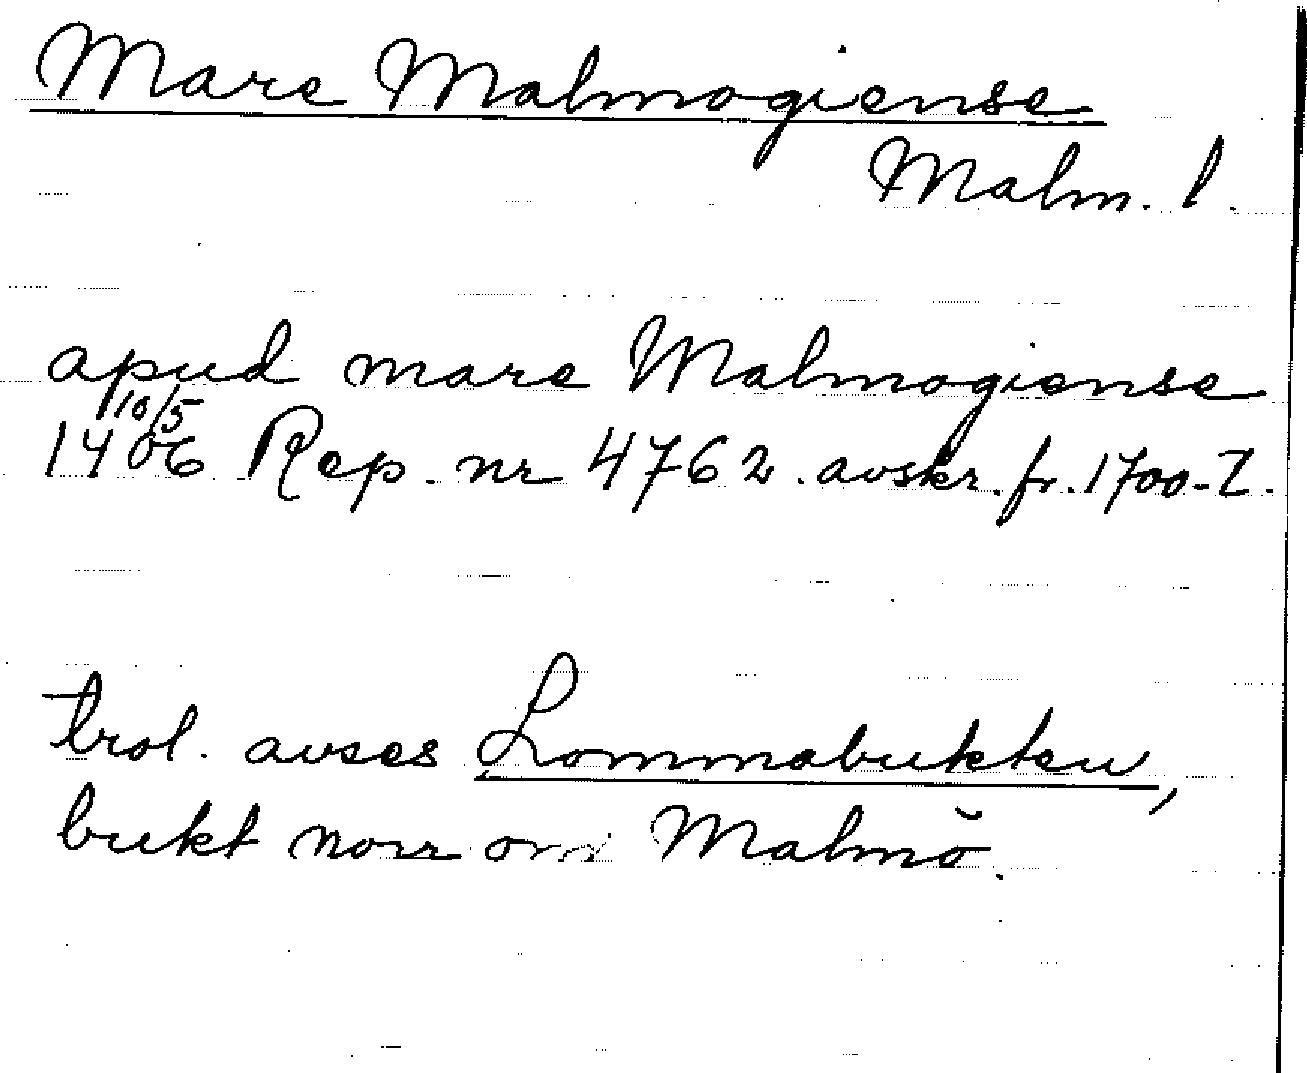 Mare Malmogiense
Malm. l.
apud mare Malmogiense
10/5
1406 Rep. nr 4762. avskr. fr. 1700-t.
trol. avses Lommabukten,
bukt norr om Malmö.